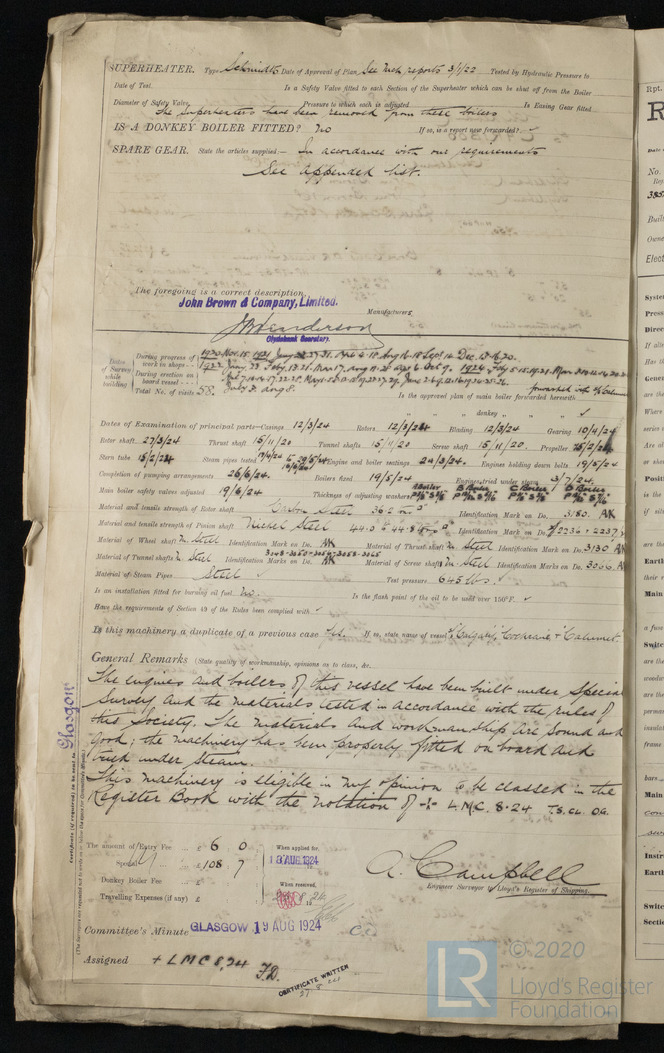 SUPERHEATER. Type Schmidts Date of Approval of Plan See Mch. reports 3/1/22 Tested by Hydraulic Pressure to
Date of Test Is a Safety Valve fitted to each Section of the Superheater which can be shut off from the Boiler
Diameter of Safety Valve Pressure to which each is adjusted Is Easing Gear fitted
The superheaters have been removed from these boilers
IS A DONKEY BOILER FITTED? No If so, is a report now forwarded? ✓
SPARE GEAR. State the articles supplied:— In accordance with our requirements
See appended list.
The foregoing is a correct description,
John Brown & Company, Limited.
Manufacturers.
JB Henderson
Clydebank Secretary.
Dates of Survey while building
During progress of work in shops - -
During erection on board vessel - - -
Total No. of visits 58.
Is the approved plan of main boiler forwarded herewith
" " " donkey " " " ✓
Dates of Examination of principal parts—Casings 12/3/24 Rotors 12/3/24 Blading 12/3/24 Gearing 10/4/24
Rotor shaft 27/3/24 Thrust shaft 15/11/20 Tunnel shafts 15/11/20 Screw shaft 15/11/20. Propeller 15/2/24
Stern tube 15/2/24 Steam pipes tested Engine and boiler seatings 24/3/24. Engines holding down bolts 19/5/24
Completion of pumping arrangements 26/6/24. Boilers fixed 19/5/24 Engines tried under steam 3/7/24.
Main boiler safety valves adjusted 19/6/24 Thickness of adjusting washers
Material and tensile strength of Rotor shaft Carbon Steel Identification Mark on Do. 3180. AK
Material and tensile strength of Pinion shaft Nickel Steel Identification Mark on Do. 2236 & 2237
Material of Wheel shaft M. Steel Identification Mark on Do. AK Material of Thrust shaft M. Steel Identification Mark on Do. 3130 AK
Material of Tunnel shafts M Steel Identification Marks on Do. AK Material of Screw shafts M. Steel Identification Marks on Do. 3006.
Material of Steam Pipes Steel ✓ Test pressure 645 lbs. ✓
Is an installation fitted for burning oil fuel No. Is the flash point of the oil to be used over 150°F. ✓
Have the requirements of Section 49 of the Rules been complied with ✓
Is this machinery a duplicate of a previous case Yes. If so, state name of vessel "Calgaric, Cochrane & Calumet.
General Remarks (State quality of workmanship, opinions as to class, &c.
The engines and boilers of this vessel have been built under Special
Survey and the materials tested in accordance with the rules of
this Society. The materials and workmanship are sound and
good; the machinery has been properly fitted on board and
tried under steam.
This machinery is eligible in my opinion to be classed in the
Register Book with the notation of + L.M.C. 8.24 T.S. CL. O.G.
Glasgow
The amount of Entry Fee .. £ 6 0 When applied for,
Special .. £ 108 7 13 AUG. 1924
Donkey Boiler Fee .. £ When received,
Travelling Expenses (if any) £
A. Campbell
Engineer Surveyor to Lloyd's Register of Shipping.
Committee's Minute GLASGOW 19 AUG 1924
Assigned + L M C 8,24 F.D.
CERTIFICATE WRITTEN
© 2020
LR
Lloyd's Register
Foundation